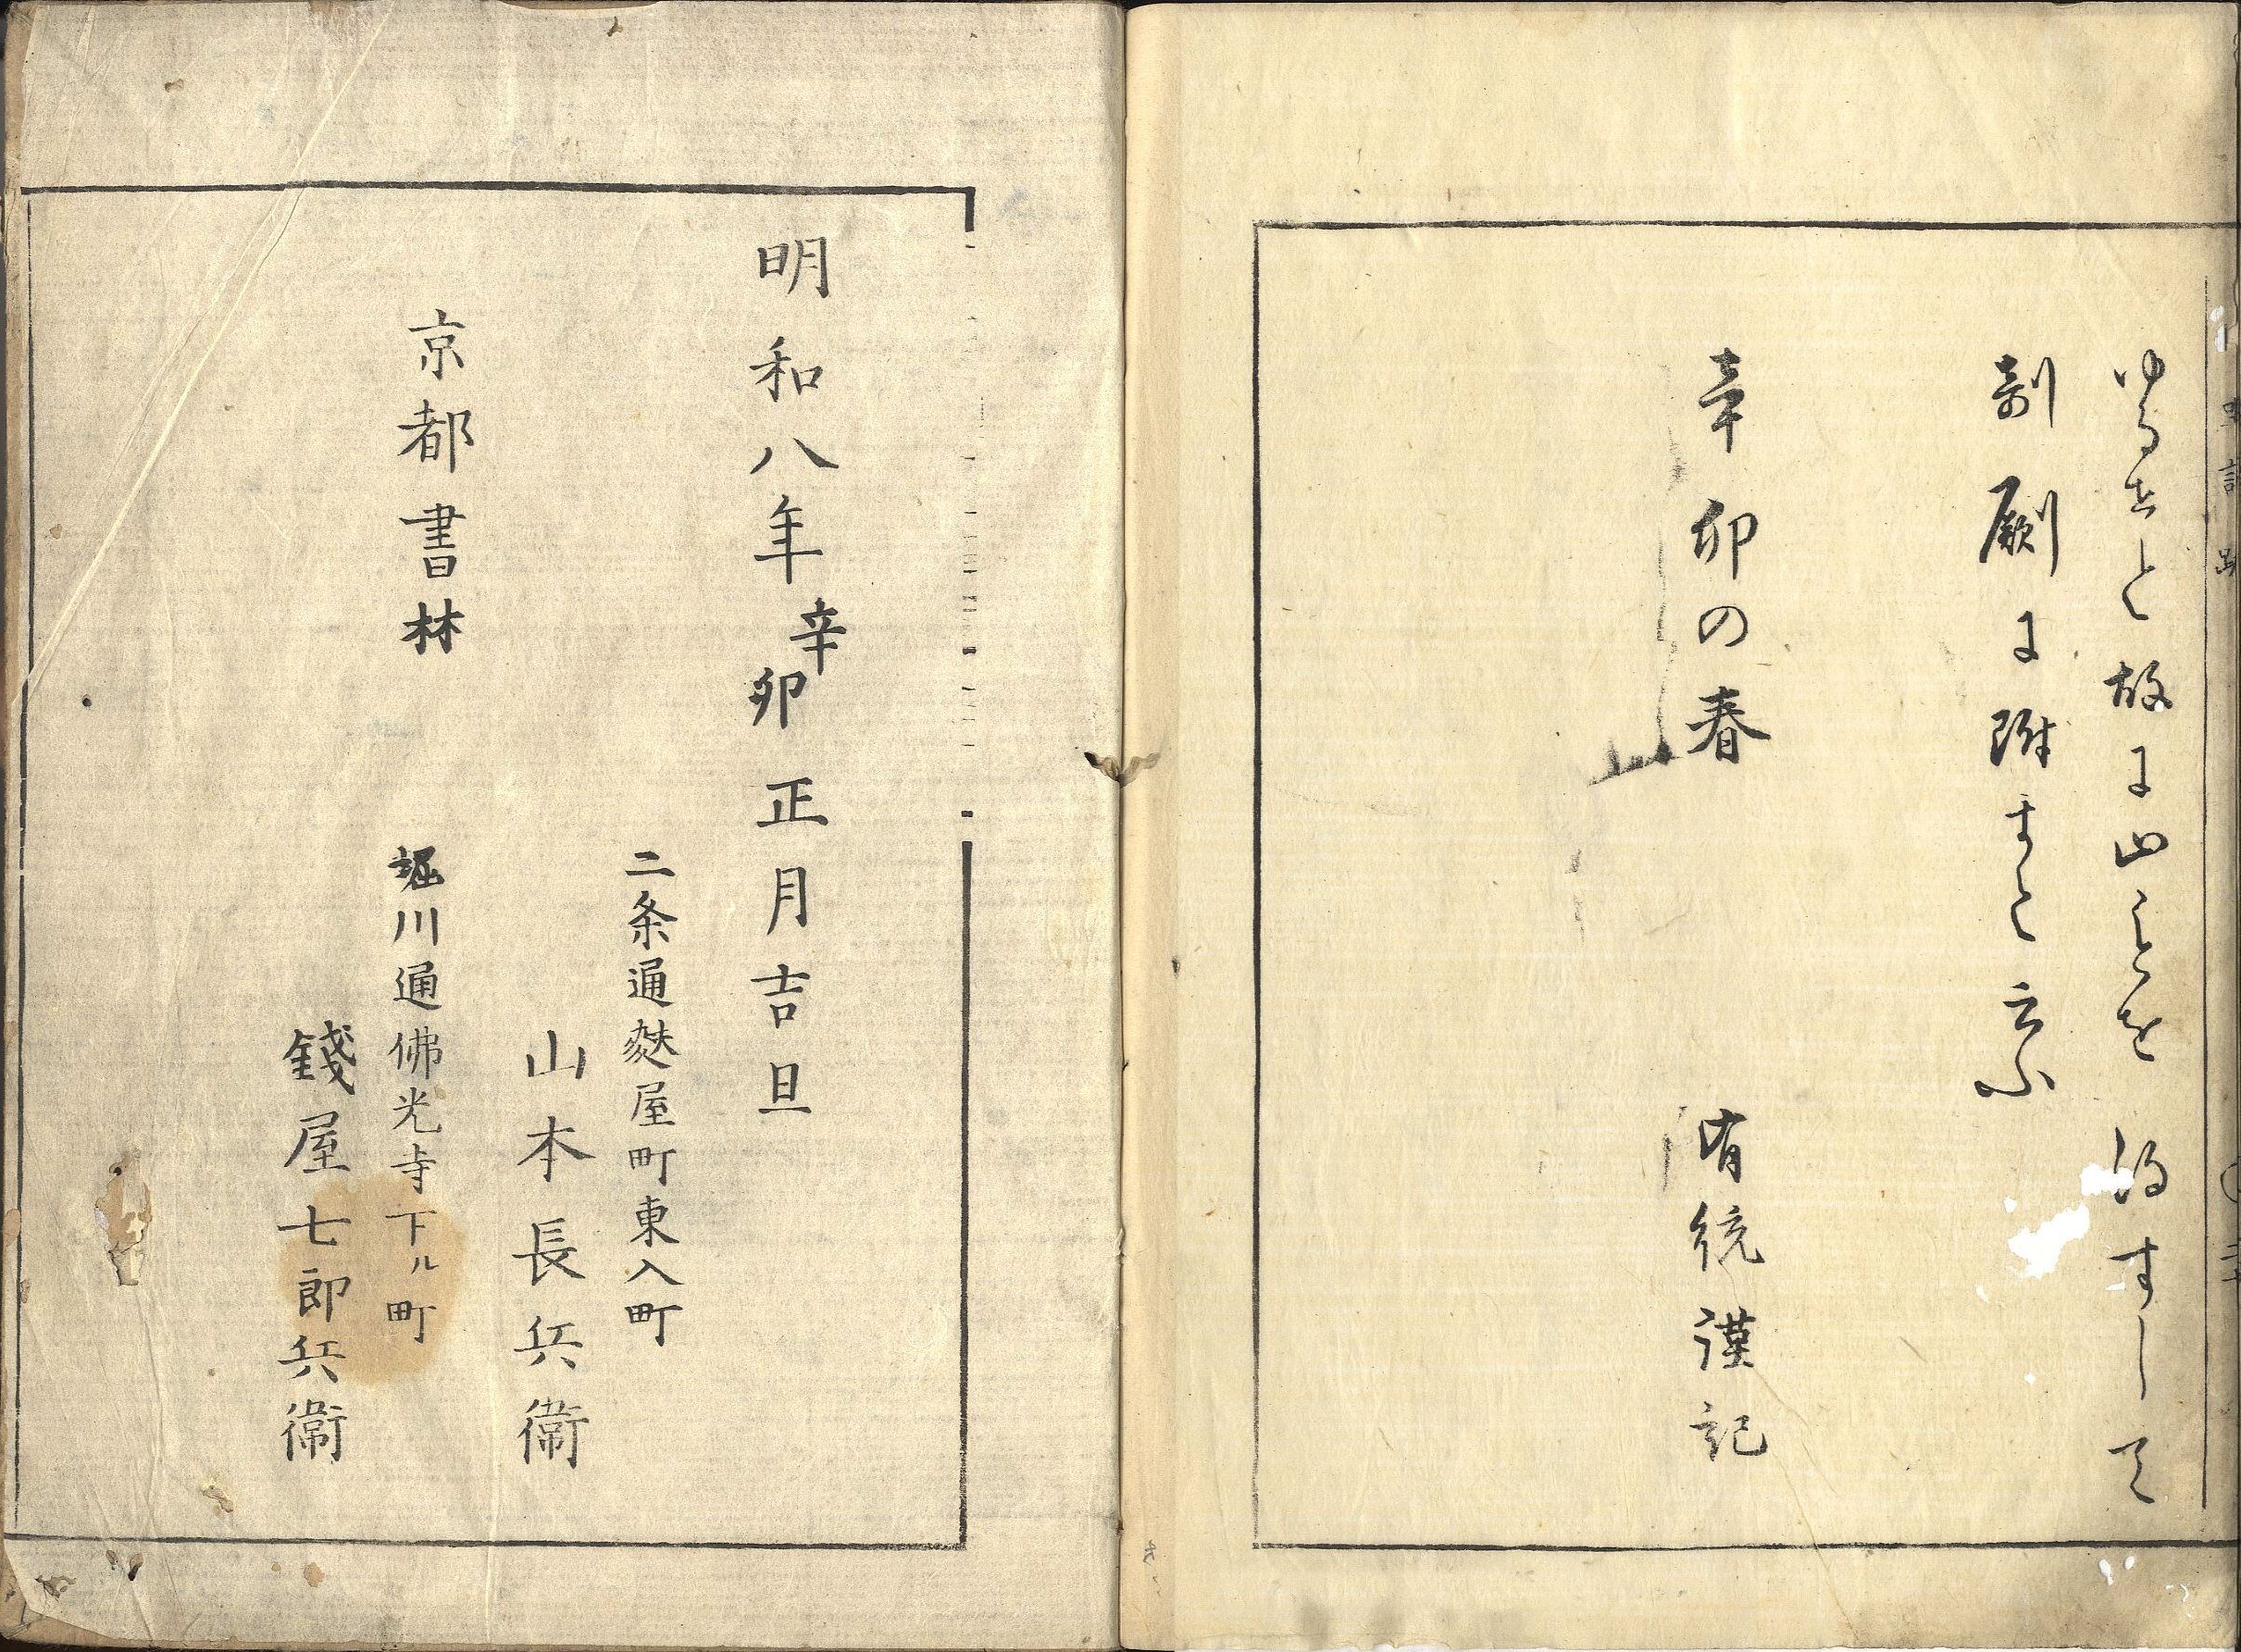 ゆるさと故に止ことを得すして
剞劂に附すと云ふ
辛卯の春
有統謹記
明和八年辛卯正月吉旦
二条通麩屋町東入町
山本長兵衛
京都書林
堀川通佛光寺下ル町
錢屋七郎兵衛